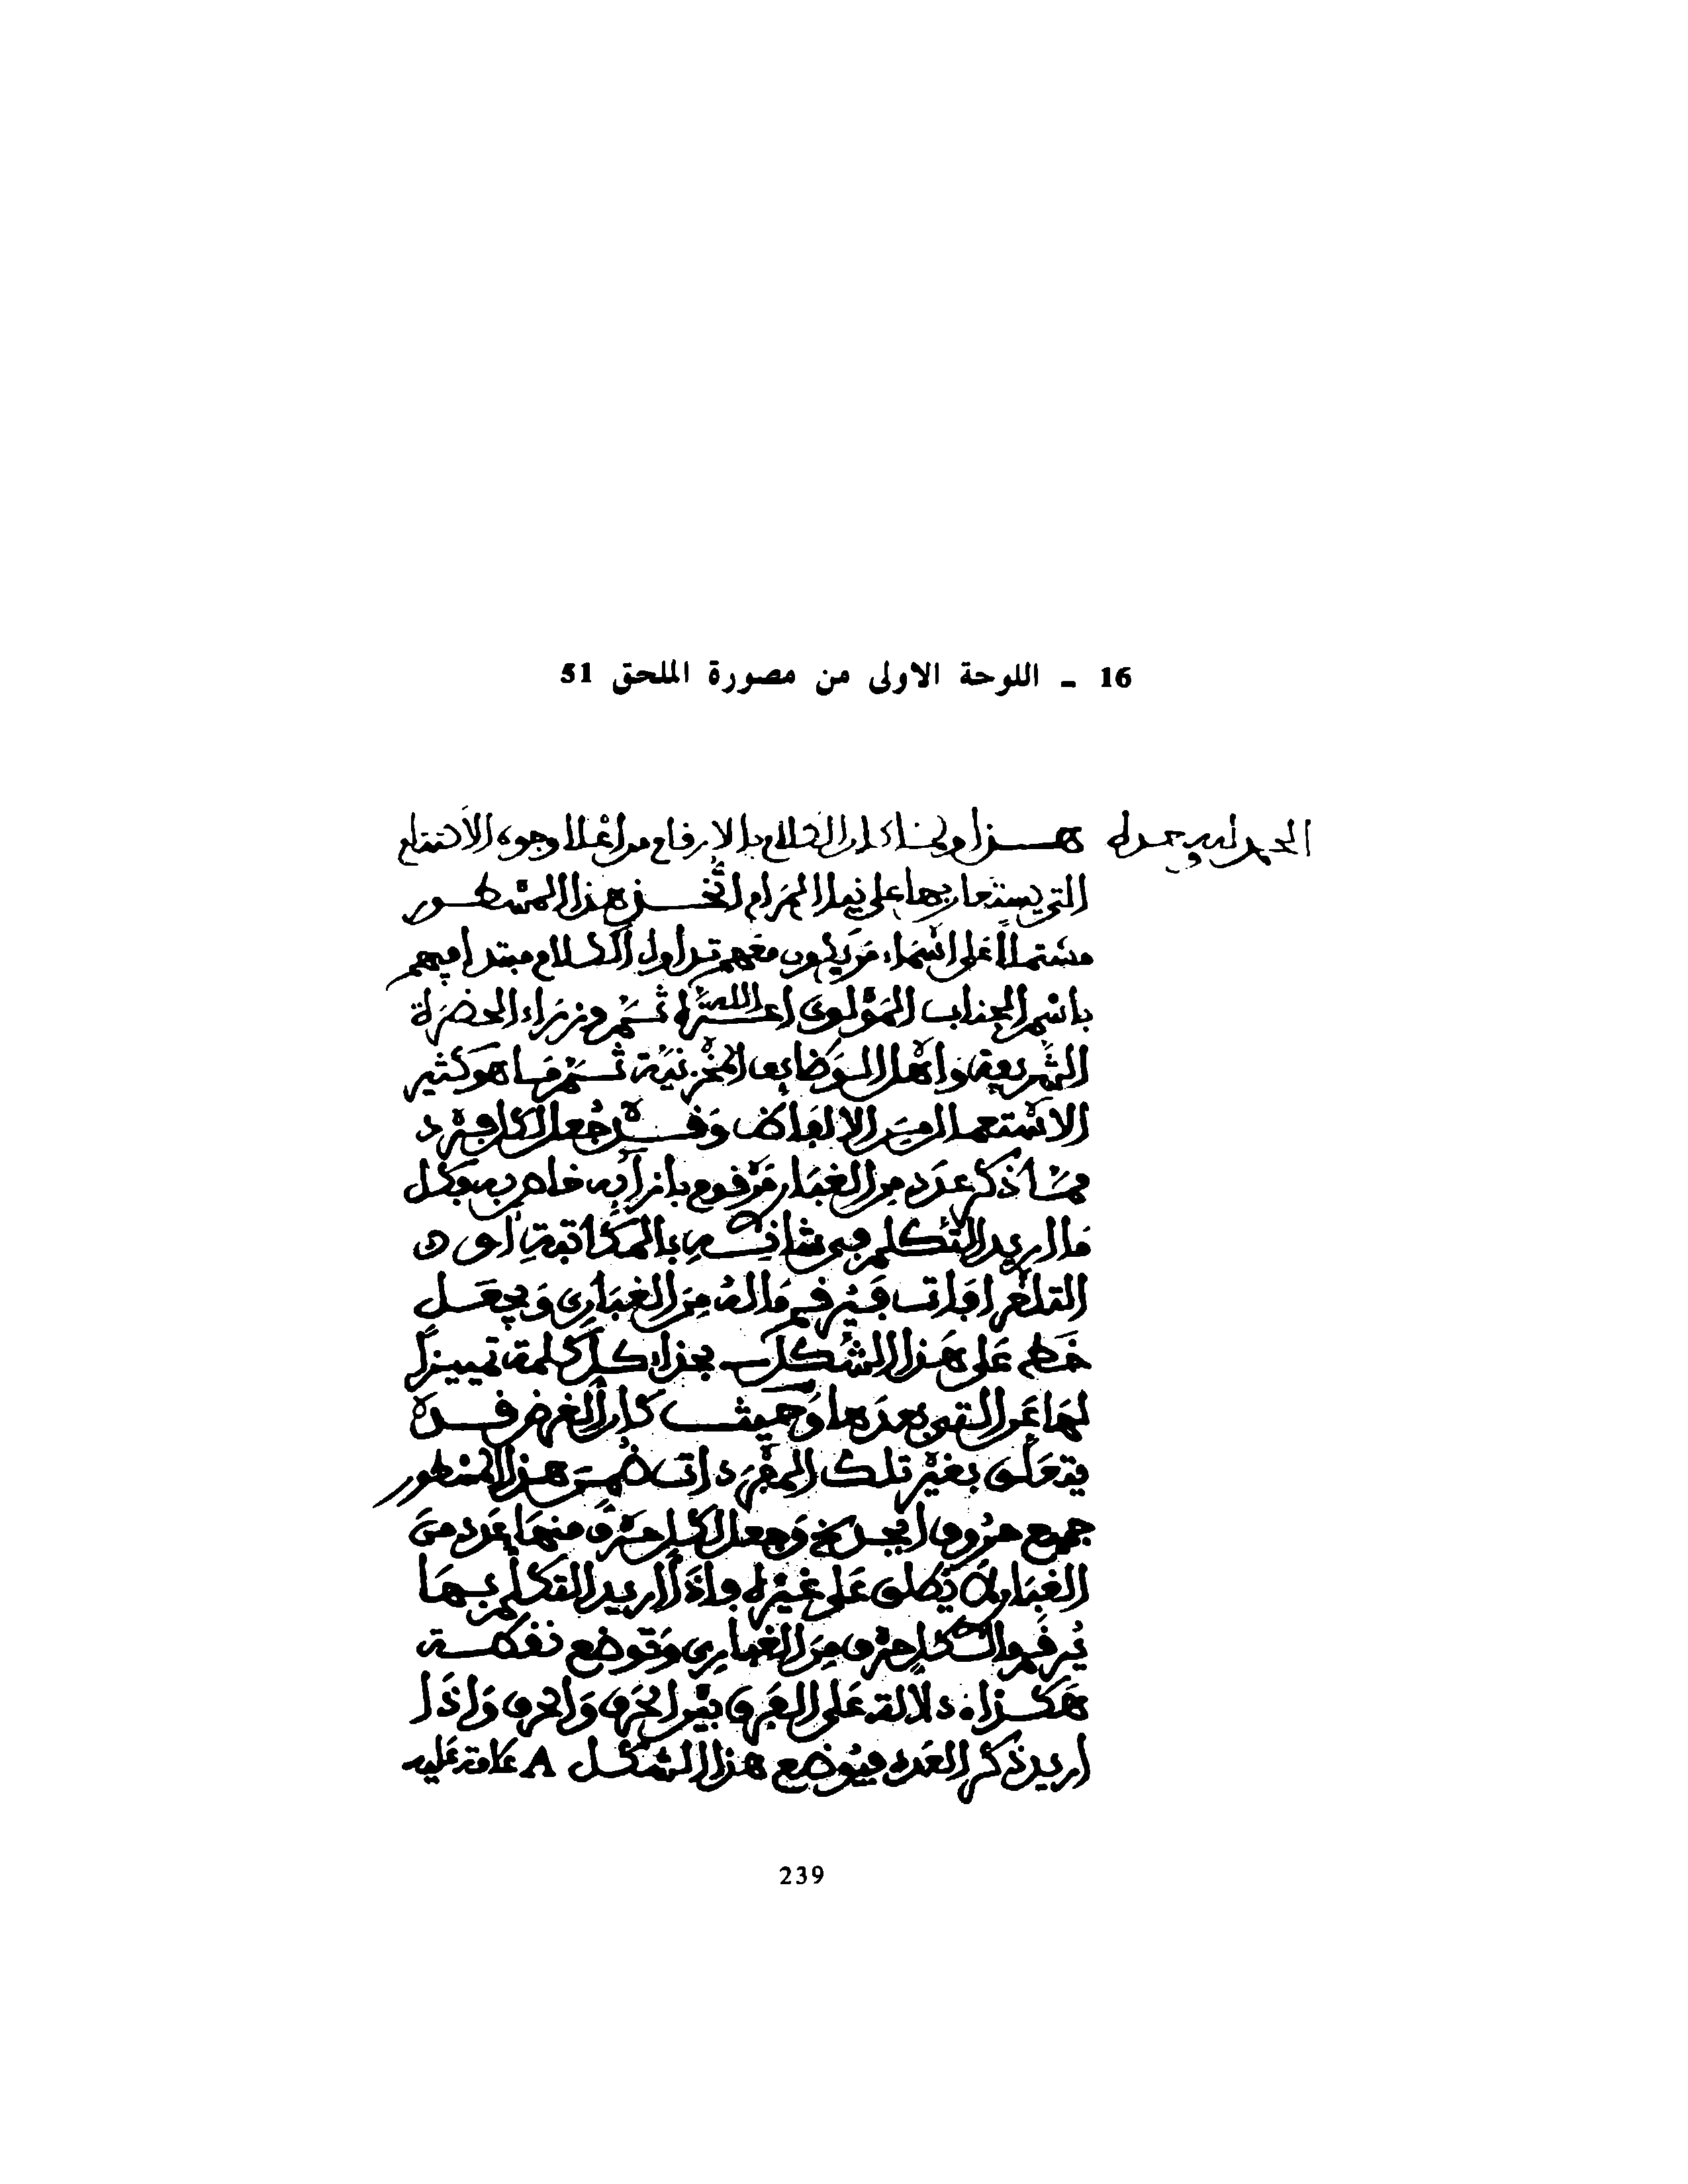 16 ـ اللوحة الاولى من مصورة الملحق 51
الحمد لله وحده هذا ولما كان الكلام بالارقام من اعلا وجوه الاكتتام
التي يستعان بها على نيل المرام اتخذ هذا المسطور
مشتملا على اسماء من يكون معهم تداول الكلام مبتدا فيهم
باسم الجناب المولوي اعزه الله ثم وزراء الحضرة
الشريفة واهل الوظائف المخزنية ثم ما هو كثير
الاستعمال من الالفاظ وقد جعل لكل فرد
مما ذكر عدد من الغبار مرفوع بازائه خاص به وكل
ما اريد التكلم في شانه بالمكاتبة او
التلغرافات فيرقم ماله من الغباري ويجعل
خط على هذا الشكل ـ بحذاء كل كلمة تمييزا
لها عن التي بعدها وحيث كان الغرض قد
يتعلق بغير تلك المفردات ضمن هذا المسطور
جميع حروف ابجد وجعل لكل حرف منها عدد من
الغبار لا يطلق على غيره واذا اريد التكلم بها
يرقم لكل حرف من الغباري وتوضع نقطة
هكذا . دلالة على الفرق بين الحرف والحرف واذا
اريد ذكر العدد فيوضع هذا الشكل A علامة عليه
239